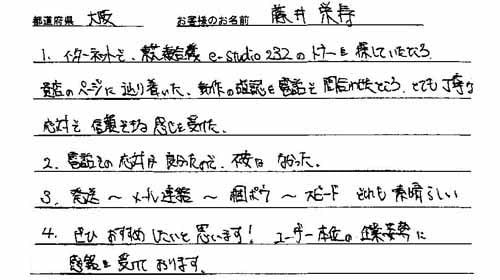 都道府県 大阪 お客様のお名前 藤井 栄寿
1. インターネットで、複合機 e-studio 232のトナーを探していたところ、
貴店のページに辿り着いた、動作の確認を電話で問合わせたところ、とても丁寧な
応対で信頼できる感じを受けた。
2. 電話での応対が良かったので、不安はなかった。
3. 発送 〜 メール連絡 〜 梱ポウ 〜 スピード どれも素晴らしい
4. ぜひおすすめしたいと思います! ユーザー本位の企業姿勢に
感銘を受けております。